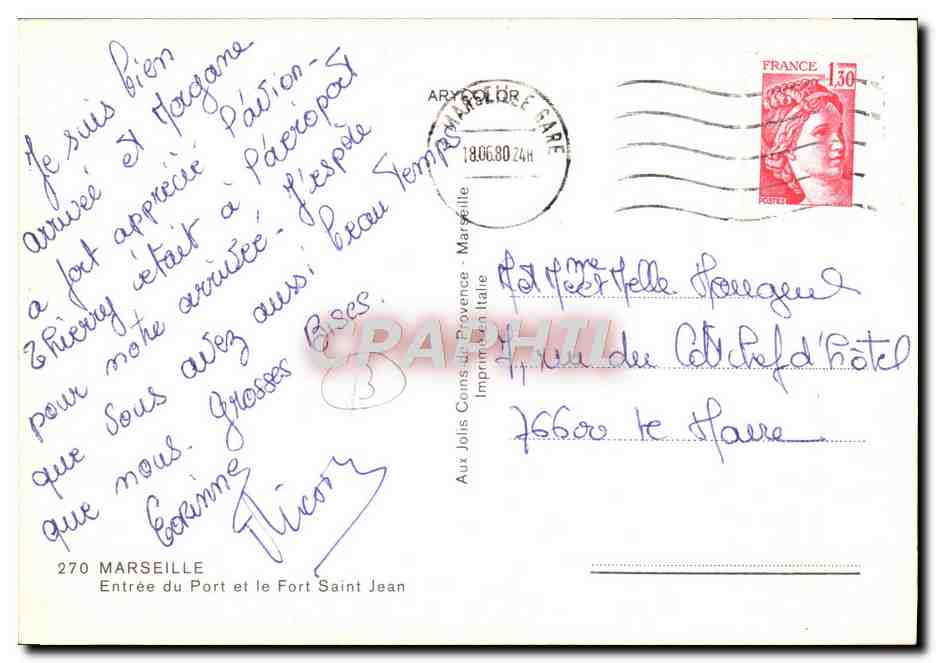 Je suis bien
arrivée et Morgane
a fort apprécié l'avion -
Thierry était à l'aéroport
pour notre arrivée. J'espère
que vous avez aussi beau temps
que nous. Grosses Bises.
Corinne
B
270 MARSEILLE
Entrée du Port et le Fort Saint Jean
ARYCOLOR
MARSEILLE GARE
18.06.80 24H
FRANCE 1,30
POSTES
Aux Jolis Coins de Provence - Marseille
Imprimé en Italie
M et Mme et Melle
7, rue du Chef d'hôtel
76600 Le Havre
CPAPHIL